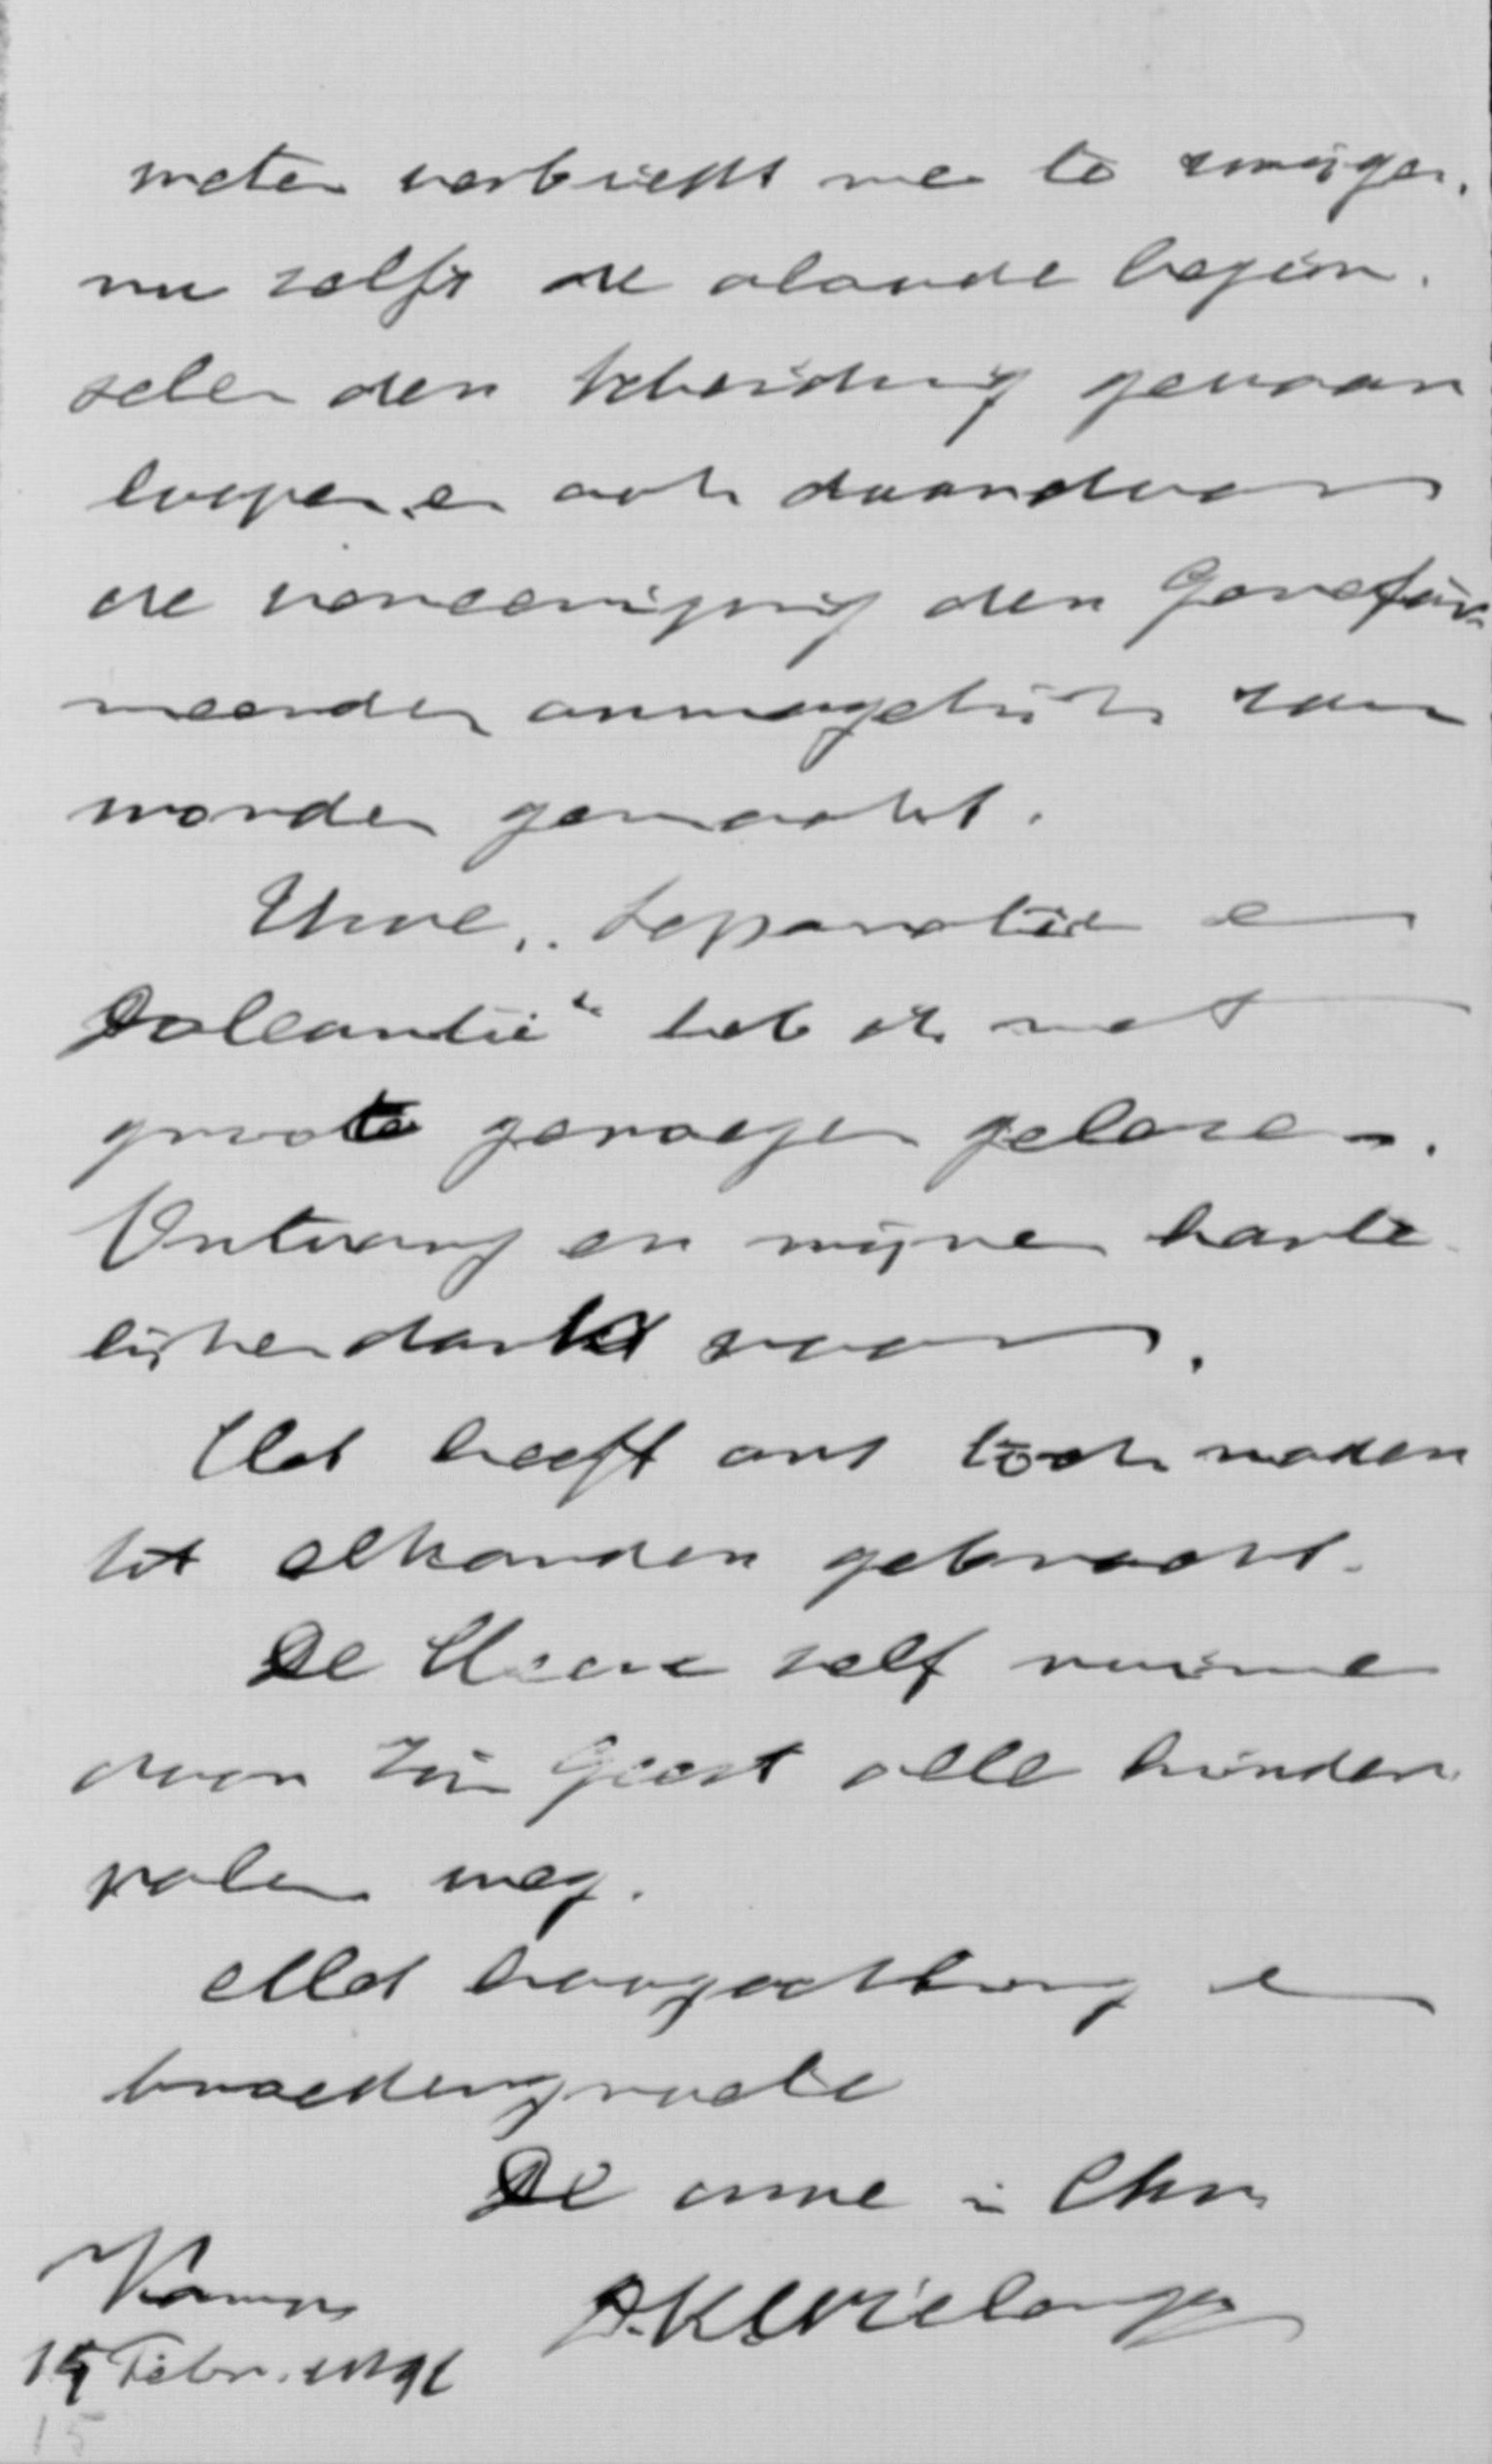 weten verbiedt me te zwijgen,
nu zelfs de aloude begin-
selen der Scheiding gevaar
loopen en ook daardoor
de vereeniging der Gerefor-
meerden onmogelijk zou
worden gemaakt.
Uwe „Separatie en
Doleantie" heb ik met
groote genoegen gelezen.
Ontvang er mijne harte-
lijken dank voor.
Het heeft ons toch nader
tot elkander gebracht.
De Heere zelf ruime
door Zijn Geest alle hinder-
palen weg.
Met hoogachting en
broedergroete
De uwe in Chr.
Kampen D.K. Wielenga
15 Febr.
15